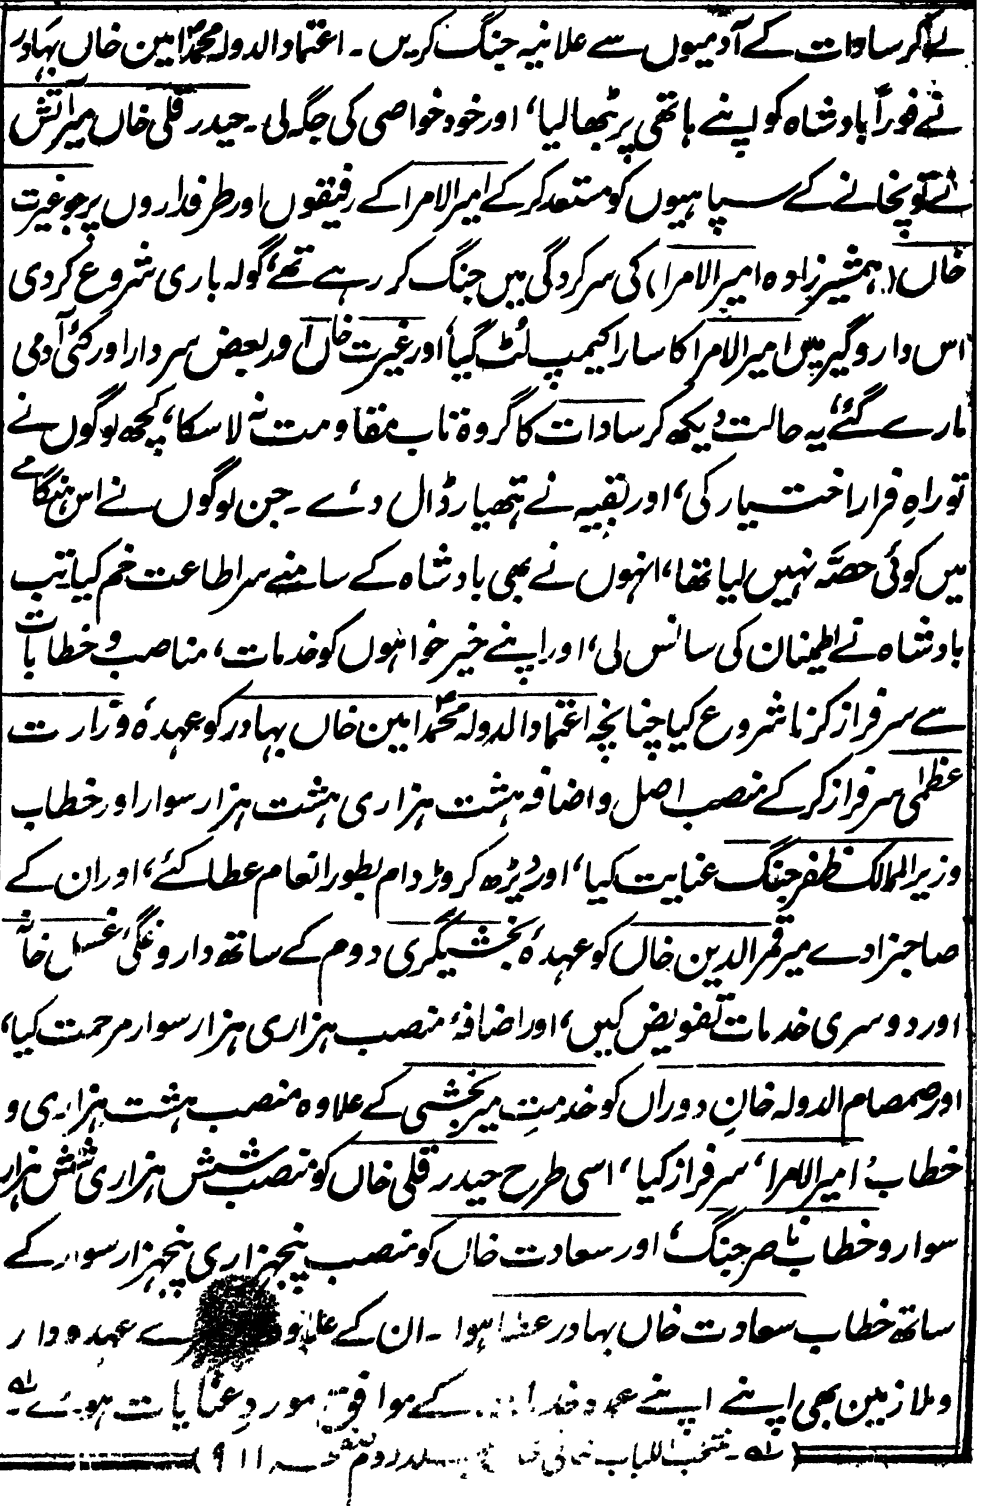 لے کر سادات کے آدمیوں سے علانیہ جنگ کریں ۔ اعتماد الدولہ محمدؐ امین خاں بہادر
نے فوراً بادشاہ کو اپنے ہاتھی پر بٹھا لیا، اور خود خواصی کی جگہ لی ۔ حیدر قلی خاں میر آتش
نے توپخانے کے سپاہیوں کو مستعد کر کے امیر الامرا کے رفیقوں اور طرفداروں پر جو غیرت
خاں (ہمشیرزادہ امیر الامرا) کی سرکردگی میں جنگ کر رہے تھے، گولہ باری شروع کردی
اس داروگیر میں امیر الامرا کا سارا کیمپ لُٹ گیا، اور غیرت خاں اور بعض سردار اور کئی آدمی
مارے گئے، یہ حالت دیکھ کر سادات کا گروہ تاب مقاومت نہ لا سکا، کچھ لوگوں نے
تو راہِ فرار اختیار کی، اور بقیہ نے ہتھیار ڈال دئے ۔ جن لوگوں نے اس ہنگامے
میں کوئی حصّہ نہیں لیا تھا، انہوں نے بھی بادشاہ کے سامنے سر اطاعت خم کیا تب
بادشاہ نے اطمینان کی سانس لی، اور اپنے خیر خواہوں کو خدمات، مناصب و خطابات
سے سرفراز کرنا شروع کیا چنانچہ اعتماد الدولہ محمدؐ امین خاں بہادر کو عہدہ وزارت
عظمٰی سرفراز کر کے منصب اصل و اضافہ ہشت ہزاری ہشت ہزار سوار اور خطاب
وزیر الممالک ظفر جنگ عنایت کیا، اور ڈیڑھ کروڑ دام بطور انعام عطا کئے، اور ان کے
صاحبزادے میر قمر الدین خاں کو عہدۂ بخشیگری دوم کے ساتھ داروغگیٔ غسل خانہ
اور دوسری خدمات تفویض کیں، اور اضافۂ منصب ہزاری ہزار سوار مرحمت کیا،
اور صمصام الدولہ خانِ دوراں کو خدمتِ میر بخشی کے علاوہ منصب ہشت ہزاری و
خطاب 'امیر الامرا' سرفراز کیا، اسی طرح حیدر قلی خاں کو منصب شش ہزاری شش ہزار
سوار و خطاب ناصر جنگ، اور سعادت خاں کو منصب پنجہزاری پنجہزار سوار کے
ساتھ خطاب سعادت خاں بہادر عطا ہوا ۔ ان کے علاوہ عہدہ دار
و ملازمین بھی اپنے اپنے عہدہ کے موافق مورد عنایات ہوئے ۔ لہ
(لہ ۔ منتخب اللباب جلد دوم صفحہ ۹۱۱)